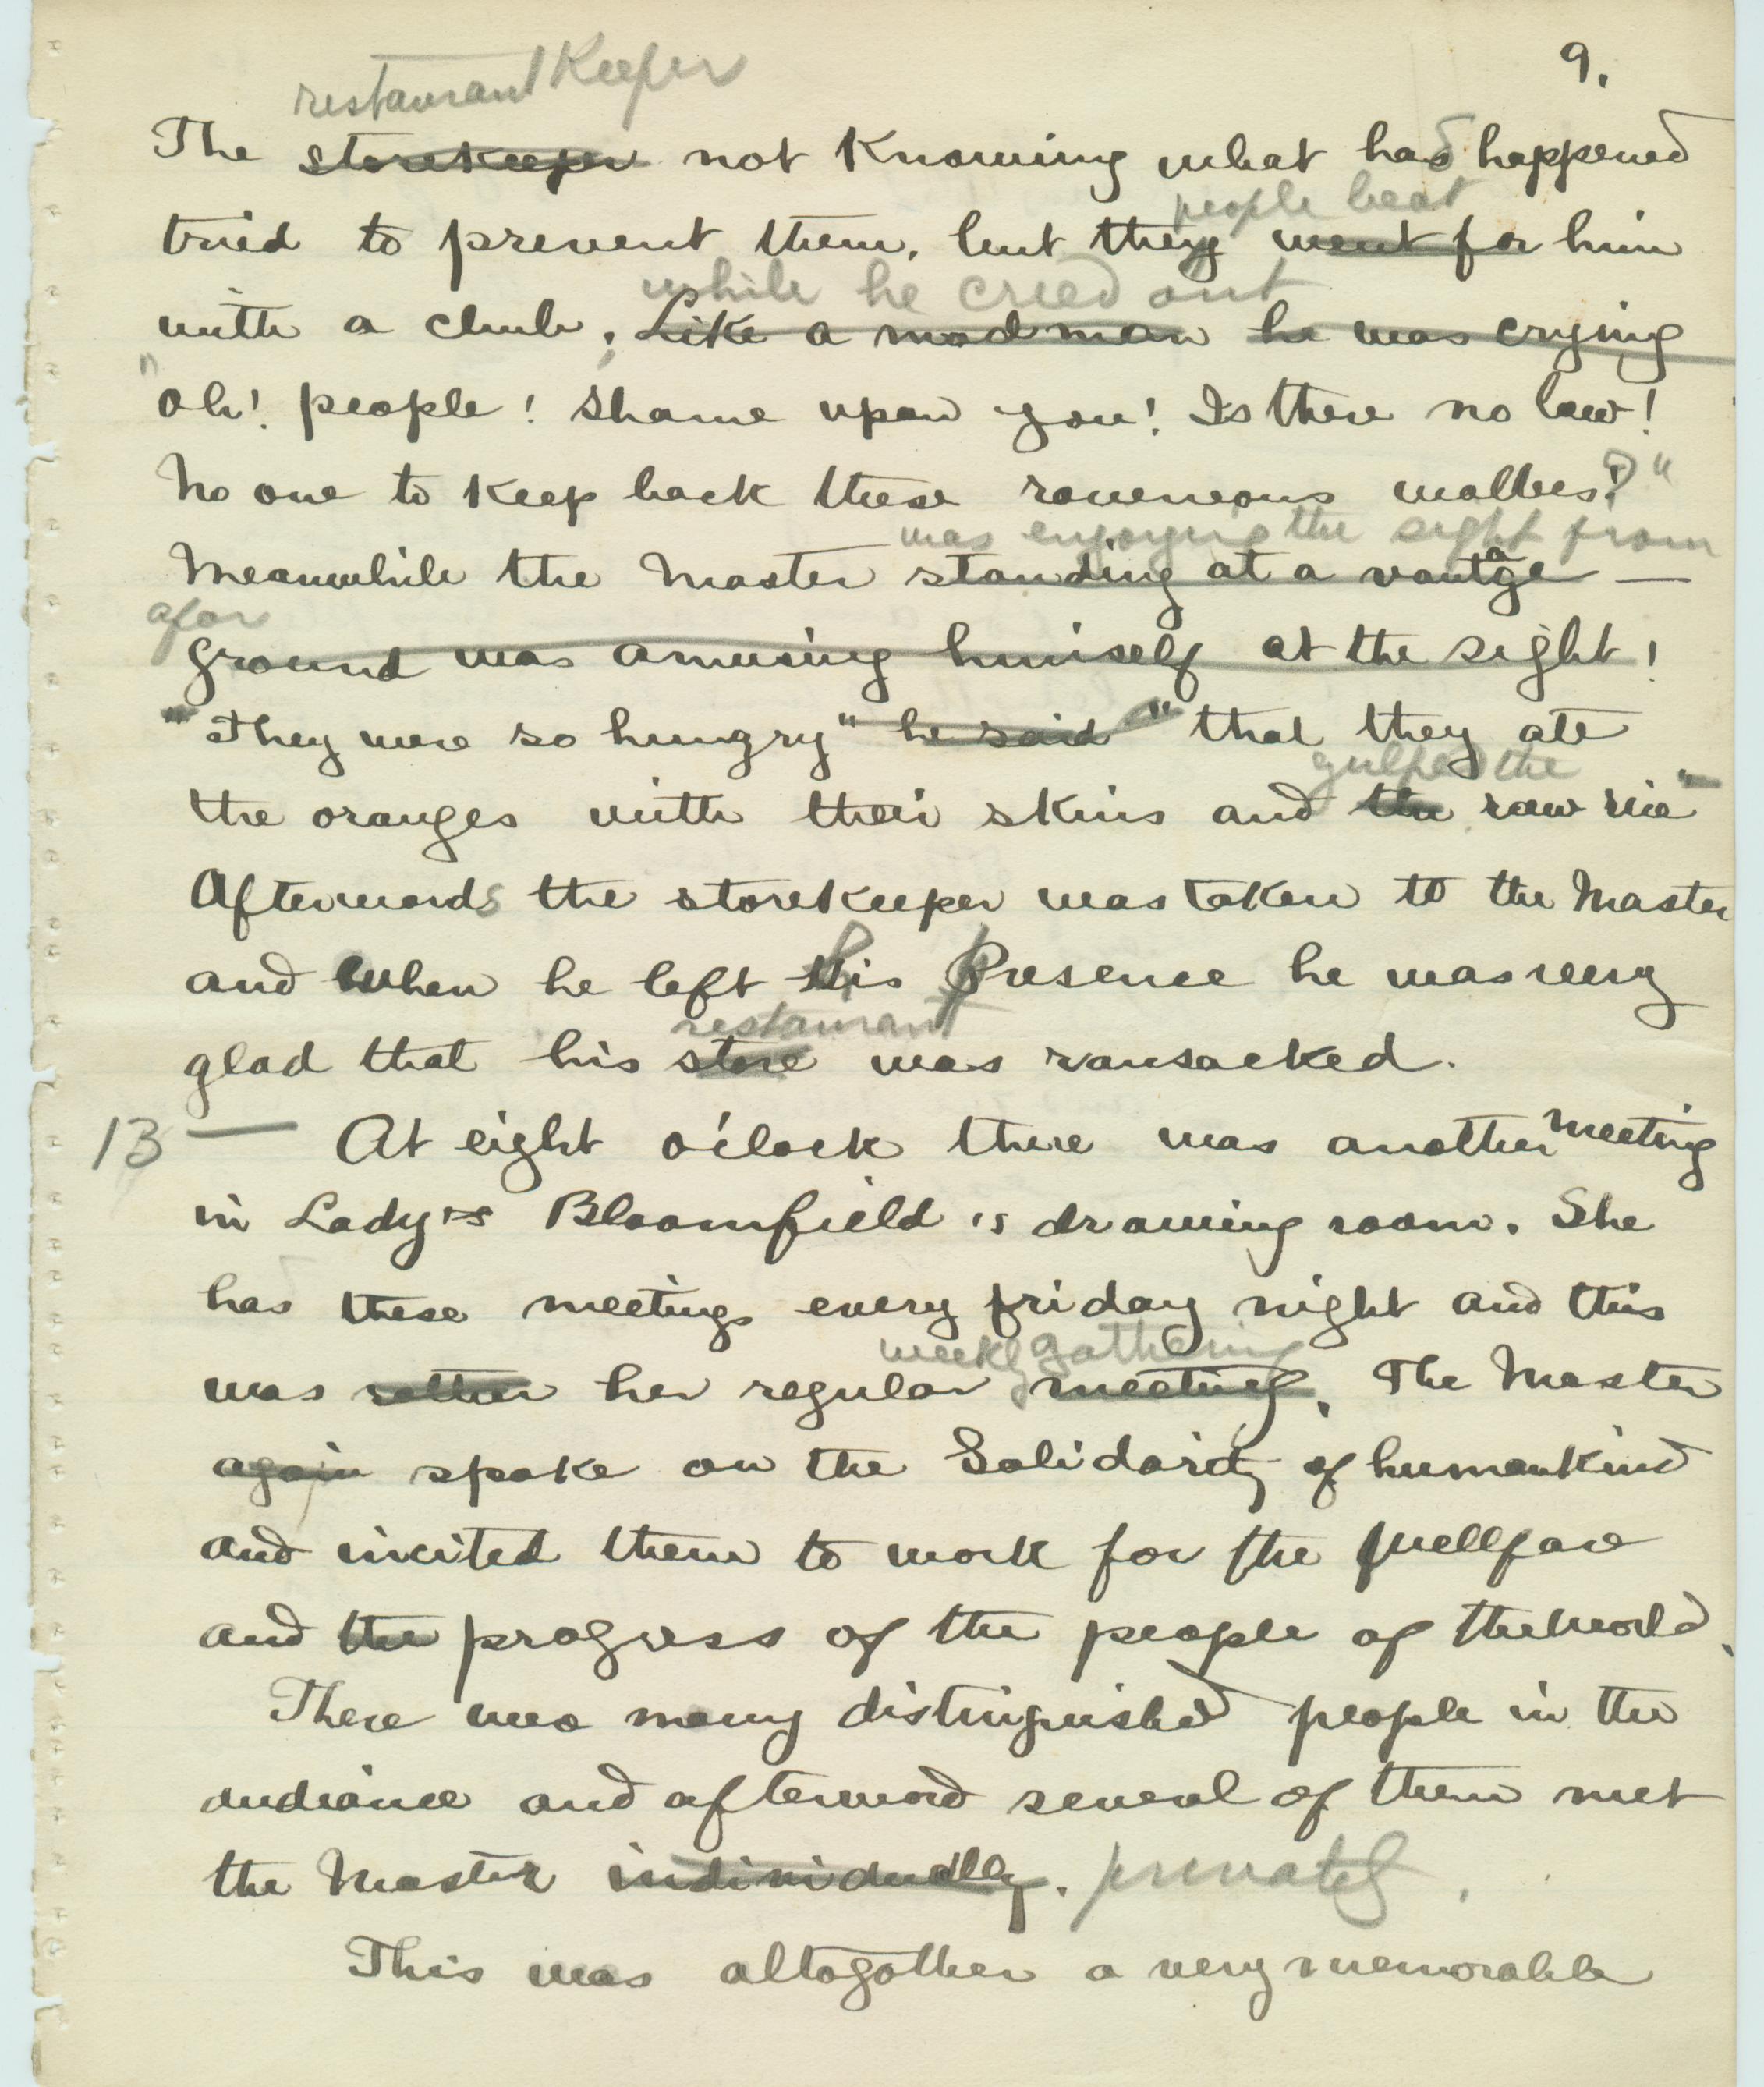 9.
restaurant Keeper
The storekeeper not Knowing what had happened
people beat
tried to prevent them, but they went for him
while he cried out
with a club; Like a mad man he was crying
"Oh! people! Shame upon you! Is there no law!
No one to keep back these raveneous wolves?"
was enjoying the sight from
Meanwhile the Master standing at a vantage —
afar
ground was amusing himself at the sight!
"They were so hungry" he said "that they ate
gulped the
the oranges with their skins and the raw rice"
Afterwards the storekeeper was taken to the Master
and when he left his presence he was very
restaurant
glad that his store was ransacked.
13 — At eight o'clock there was another meeting
in Lady's Bloomfield's drawing room. She
has these meetings every friday night and this
weekly gathering
was rather her regular meeting. The Master
again spoke on the Solidarity of humankind
and invited them to work for the wellfare
and the progress of the people of the world.
There were many distinguished people in the
audiance and afterward several of them met
the Master individually. privately.
This was altogother a very memorable